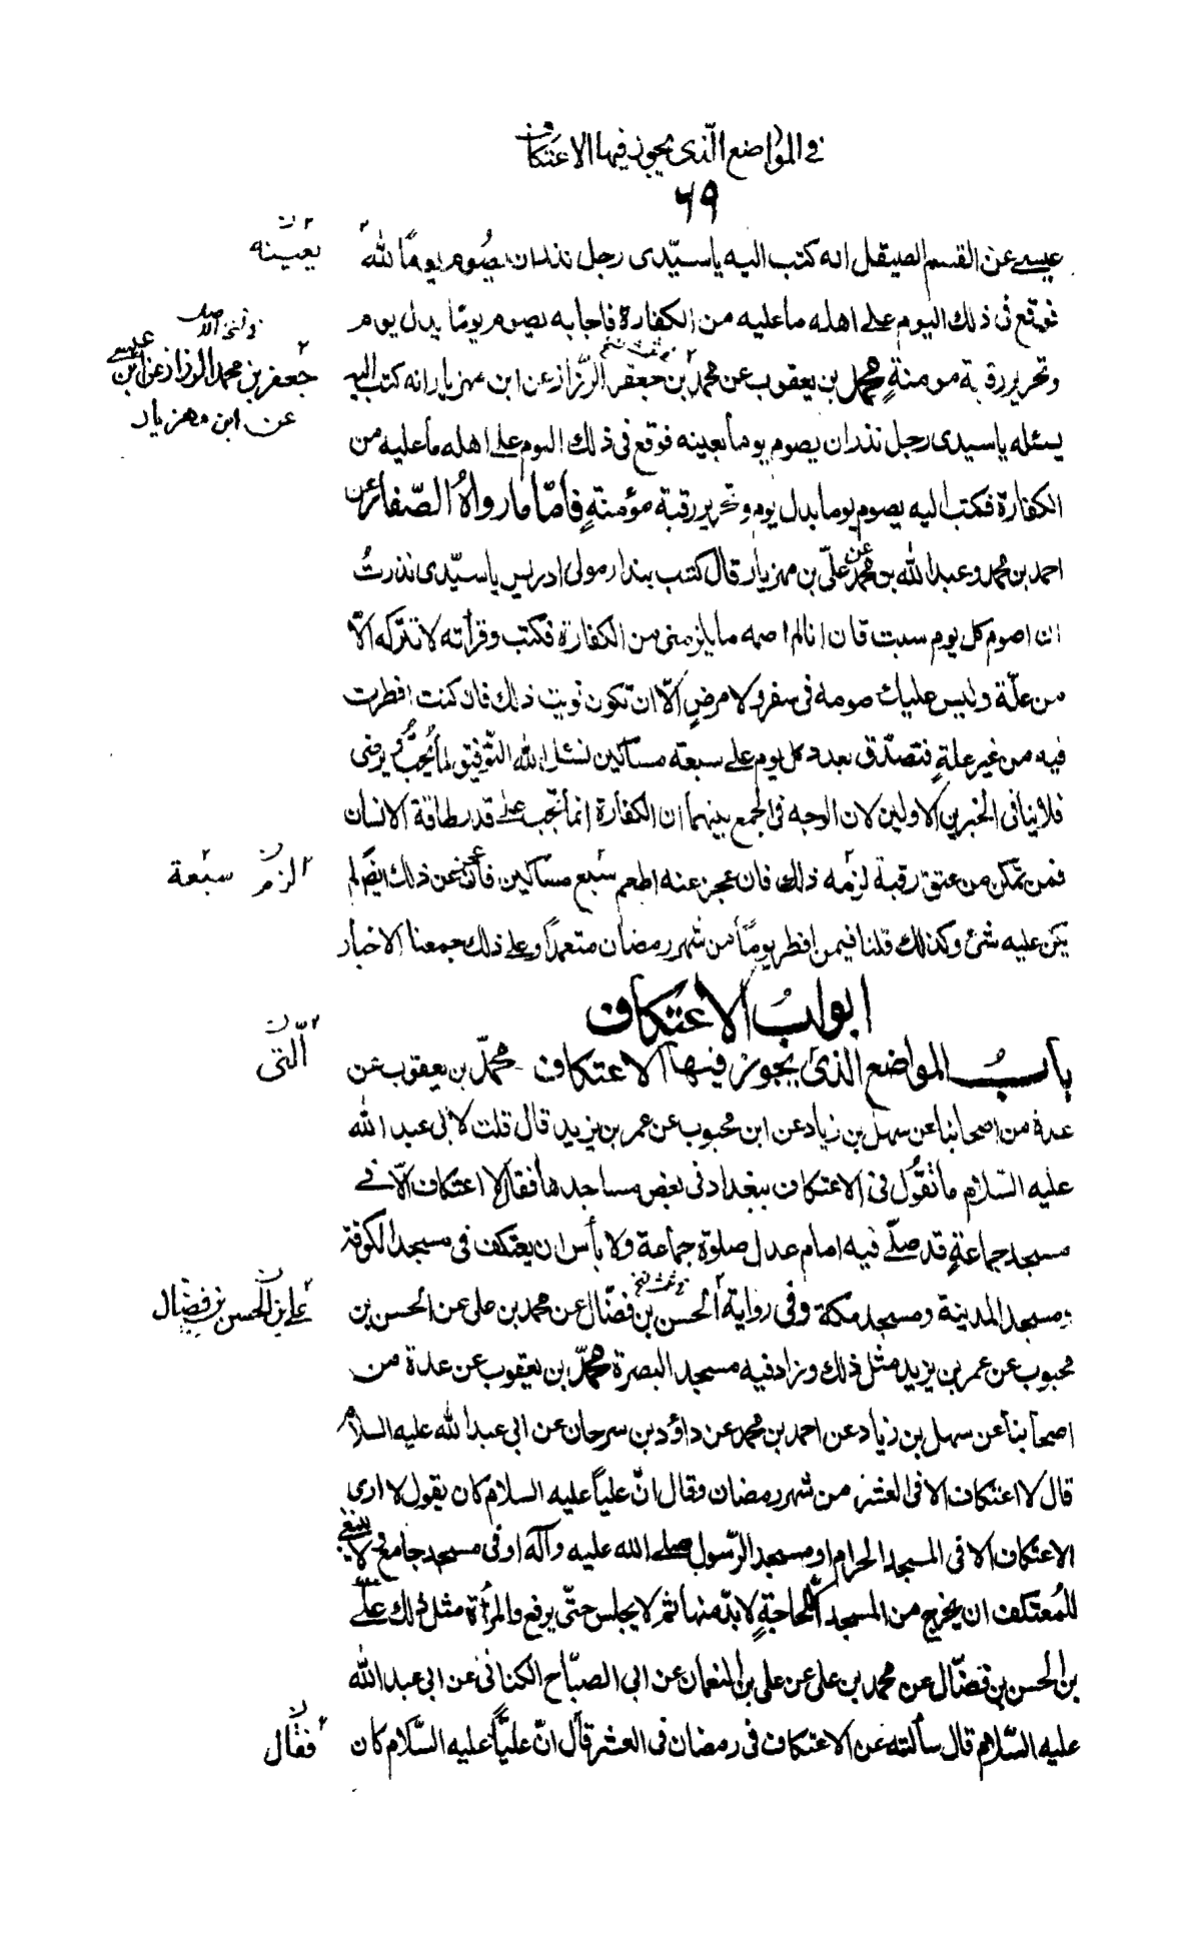 في المواضع الّذى يجوز فيها الاعتكاف
٦٩
عيسى عن القسم الصيقل انه كتب اليه ياسيّدى رجل نذر ان يصُوم يومًا لله
بعينه
فوقع فى ذلك اليوم على اهله ما عليه من الكفارة فاجابه يصوم يومًا بدل يوم
وتحرير رقبة مومنةٍ محمد بن يعقوب عن محمد بن جعفر الرزّاز عن ابن مهزيار انه كتب اليه
جعفر بن محمد الرزاز عن ابن عيسى
عن ابن مهزيار
يسئله ياسيدى رجل نذر ان يصوم يوما بعينه فوقع فى ذلك اليوم على اهله ما عليه من
الكفارة فكتب اليه يصوم يوما بدل يوم وتحرير رقبة مؤمنةٍ فأمّا ما رواهُ الصّفار عن
احمد بن محمد وعبد الله بن محمد عن علىّ بن مهزيار قال كتب بندار مولى ادريس ياسيّدى نذرتُ
ان اصوم كل يوم سبت فان انا لم اصمه ما يلزمنى من الكفارة فكتب وقرأته لا تتركه الّا
من علّة وليس عليك صومه فى سفر ولا مرضٍ الّا ان تكون نويت ذلك فان كنت افطرت
فيه من غير علةٍ فتصدّق بعدد كل يوم على سبعة مساكين نسئل الله التّوفيق لما يُحبّ ويرضى
فلا ينافى الخبرين الاولين لان الوجه فى الجمع بينهما ان الكفارة انما تجب على قدر طاقة الانسان
فمن تمكن من عتق رقبة لزمه ذلك فان عجز عنه اطعم سبع مساكين فأن عجز عن ذلك ايضًا لم
الزم سبعة
يكن عليه شئ وكذلك قلنا فيمن افطر يومًا من شهر رمضان متعمدًا وعلى ذلك جمعنا الاخبار
ابواب الاعتكاف
باب المواضع الذى يجوز فيها الاعتكاف محمّد بن يعقوب عن
الّتى
عدة من اصحابنا عن سهل بن زياد عن ابن محبوب عن عمر بن يزيد قال قلت لابى عبد الله
عليه السّلام ما تقُول فى الاعتكاف ببغداد فى بعض مساجدها فقال لا اعتكاف الّا فى
مسجد جماعةٍ قد صلّى فيه امام عدل صلوة جماعة ولا بأس ان يعتكف فى مسجد الكوفة
ومسجد المدينة ومسجد مكة وفى رواية الحسن بن فضّال عن محمد بن على عن الحسن بن
على بن الحسن بن فضال
محبوب عن عمر بن يزيد مثل ذلك وزاد فيه مسجد البصرة محمّد بن يعقوب عن عدة من
اصحابنا عن سهل بن زياد عن احمد بن محمد عن داؤد بن سرحان عن ابى عبد الله عليه السلام
قال لا اعتكاف الا فى العشر من شهر رمضان وقال انّ علياً عليه السلام كان يقول لا ارى
الاعتكاف الا فى المسجد الحرام او مسجد الرّسول صلى الله عليه وآله او فى مسجد جامع ولا ينبغى
للمُعتكف ان يخرج من المسجد الّا لحاجةٍ لا بدّ منها ثم لا يجلس حتّى يرجع والمرأة مثل ذلك علىّ
بن الحسن بن فضّال عن محمد بن على عن على بن النعمان عن ابى الصبّاح الكنانى عن ابى عبد الله
عليه السّلام قال سألته عن الاعتكاف فى رمضان فى العشر قال انّ عليّاً عليه السّلام كان
فقال